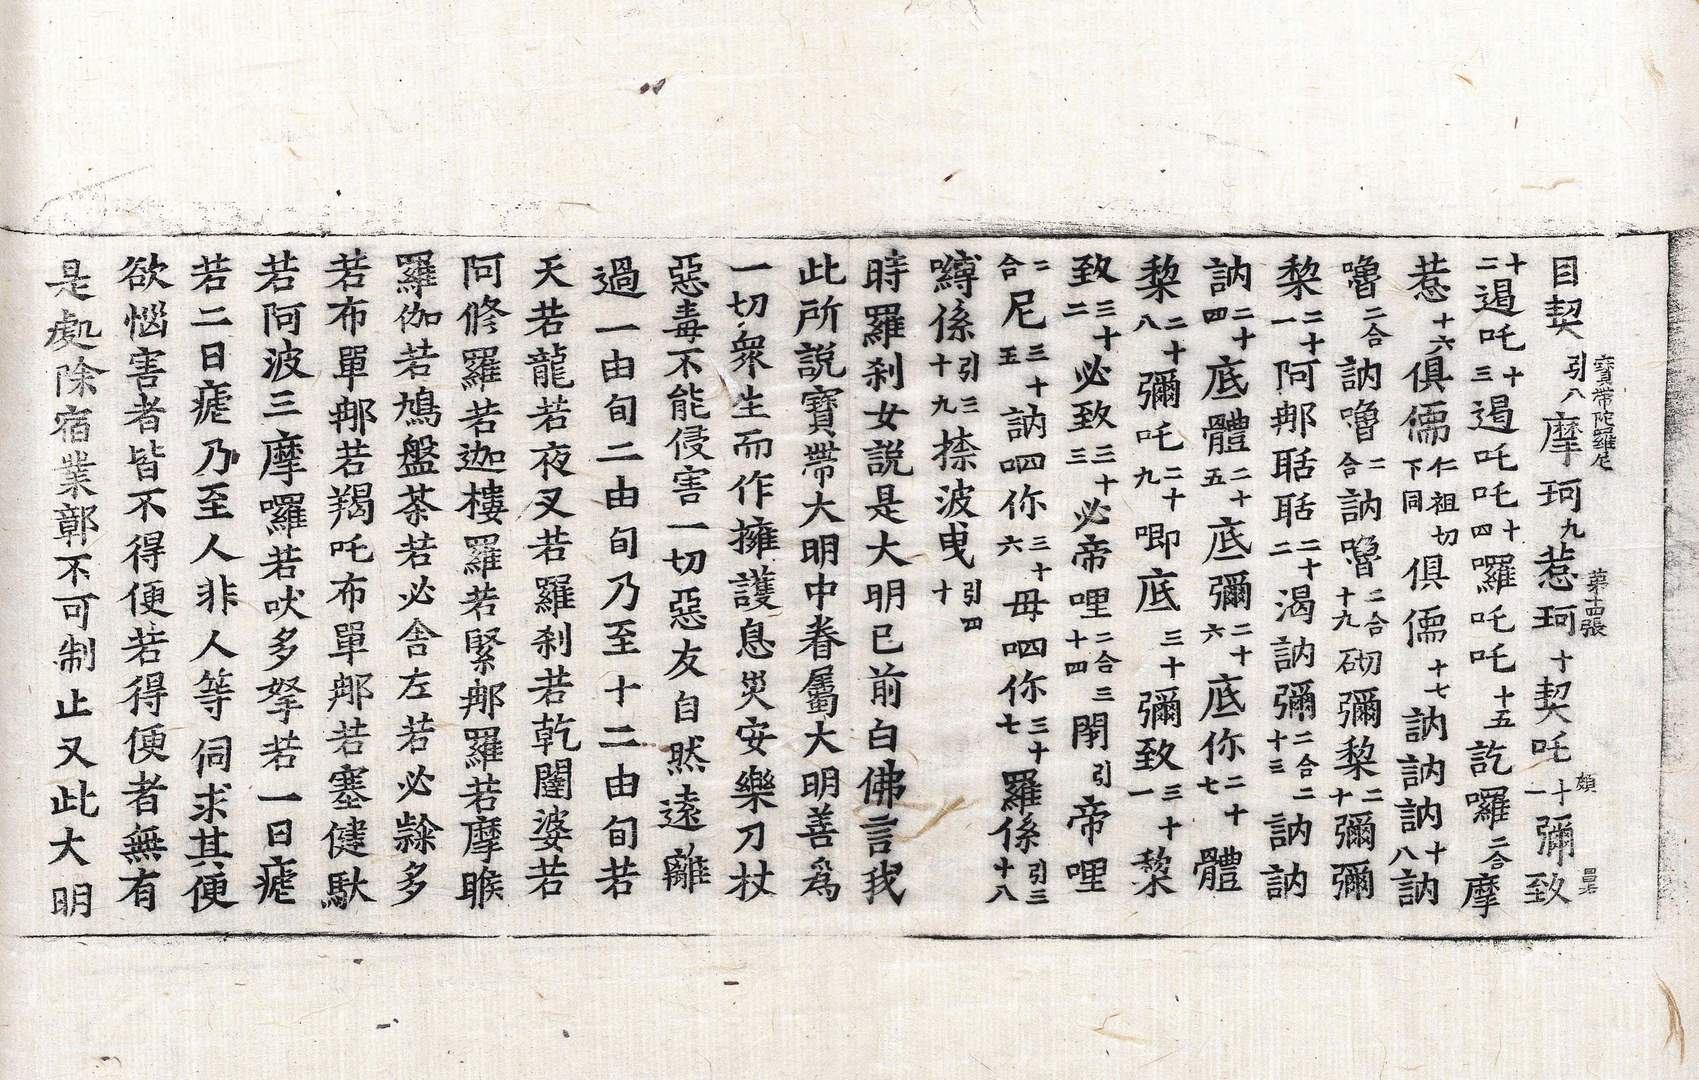 寶帶陀羅尼 第十四張 頗
目契引八摩珂九惹珂十契吒十一彌致
十二遏吒十三遏吒吒十四囉吒吒十五訖囉二合摩
惹十六俱儒仁祖切下同俱儒十七訥訥訥十八訥
嚕二合訥嚕二合訥嚕二合十九砌彌黎二十彌彌
黎二十一阿那聒聒二十二渴訥彌二合二十三訥訥
訥二十四底體二十五底彌二十六底你二十七體
黎二十八彌吒二十九唧底三十彌致三十一黎
致三十二必致三十三必帝哩二合三十四閉引帝哩
二合尼三十五訥呬你三十六毋呬你三十七羅係引三十八
嚩係引三十九捺波曳引四十
時羅刹女説是大明已前白佛言我
此所説寶帶大明中眷屬大明善為
一切衆生而作擁護息災安樂刀杖
惡毒不能侵害一切惡友自然遠離
過一由旬二由旬乃至十二由旬若
天若龍若夜叉若羅刹若乾闥婆若
阿修羅若迦樓羅若緊那羅若摩睺
羅伽若鳩盤茶若必舍左若必隸多
若布單那若羯吒布單那若塞健馱
若阿波三摩囉若吠多拏若一日瘧
若二日瘧乃至人非人等伺求其便
欲惱害者皆不得便若得便者無有
是處除宿業鄣不可制止又此大明